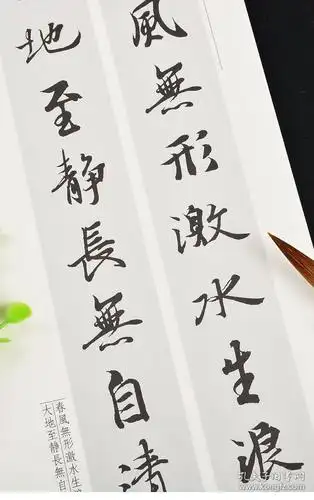 風無形激水生浪
地至静長無自清
春風無形激水生
大地至静長無自
孔夫子旧书网
www.kongfz.com